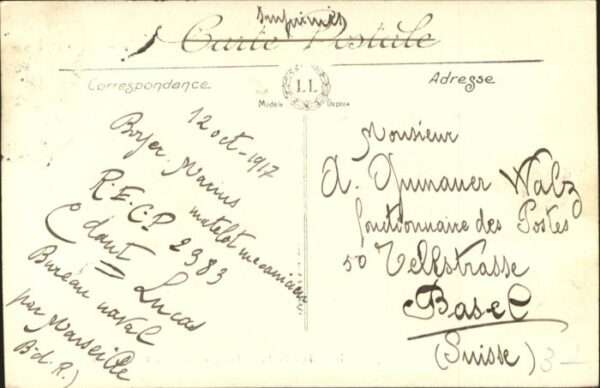 Imprimés
Carte Postale
Correspondance
Adresse
LL
Modèle Déposé
12 oct - 1917
Boyer Marius
matelot mecanicien
R.E.C.P. 2983
Cdant Lucas
Bureau naval
par Marseille
B.d.R.)
Monsieur
A. Gunauer Walz
fonctionnaire des Postes
50 Tellstrasse
Basel
(Suisse)
3-